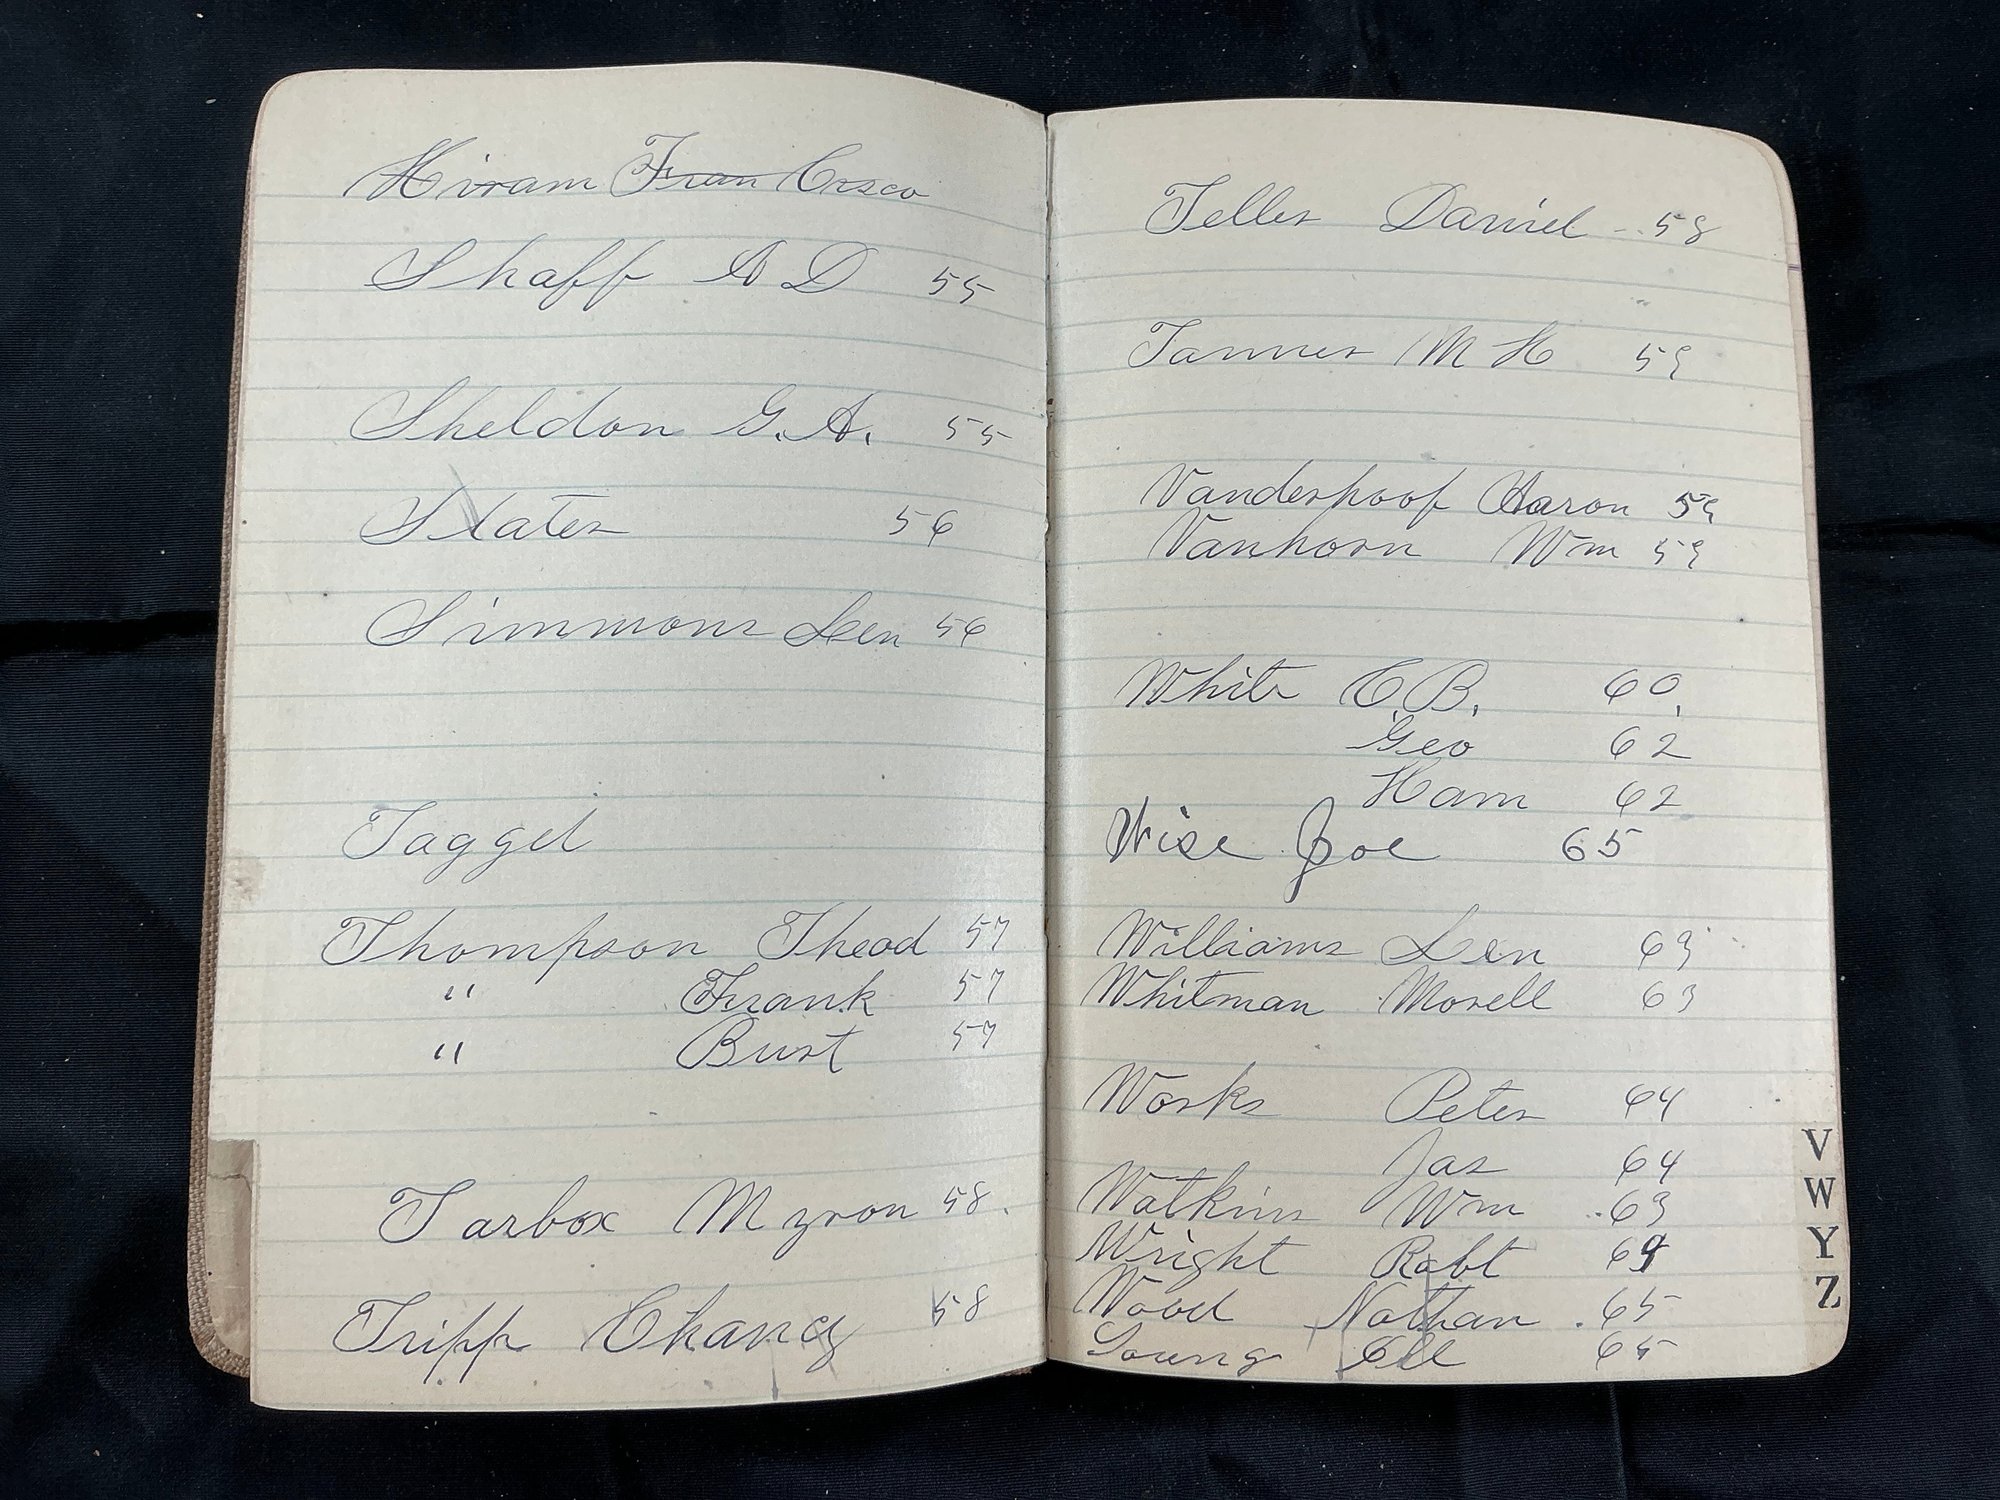 Hiram Fran Crsco
Shaff A D 55
Sheldon G. A. 55
Slater 56
Simmons Len 56
Tagget
Thompson Theod 57
" Frank 57
" Burt 57
Tarbox Myron 58.
Tripp Chancy 58
Teller Daniel 58
Tanner M H 59
Vanderhoof Aaron 59
Vanhorn Wm 59
White C. B. 60
Geo 62
Ham 62
Wise Joe 65
Williams Len 63
Whitman Morell 63
Works Peter 64
Jas 64
Watkins Wm 63
Wright Robt 64
Wood Nathan 65
Young Ell 65
V
W
Y
Z